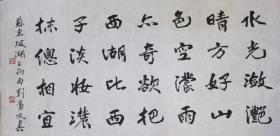 水光瀲灧
晴方好山
色空濛雨
亦奇欲把
西湖比西
子淡妝濃
抹總相宜
蘇東坡湖上